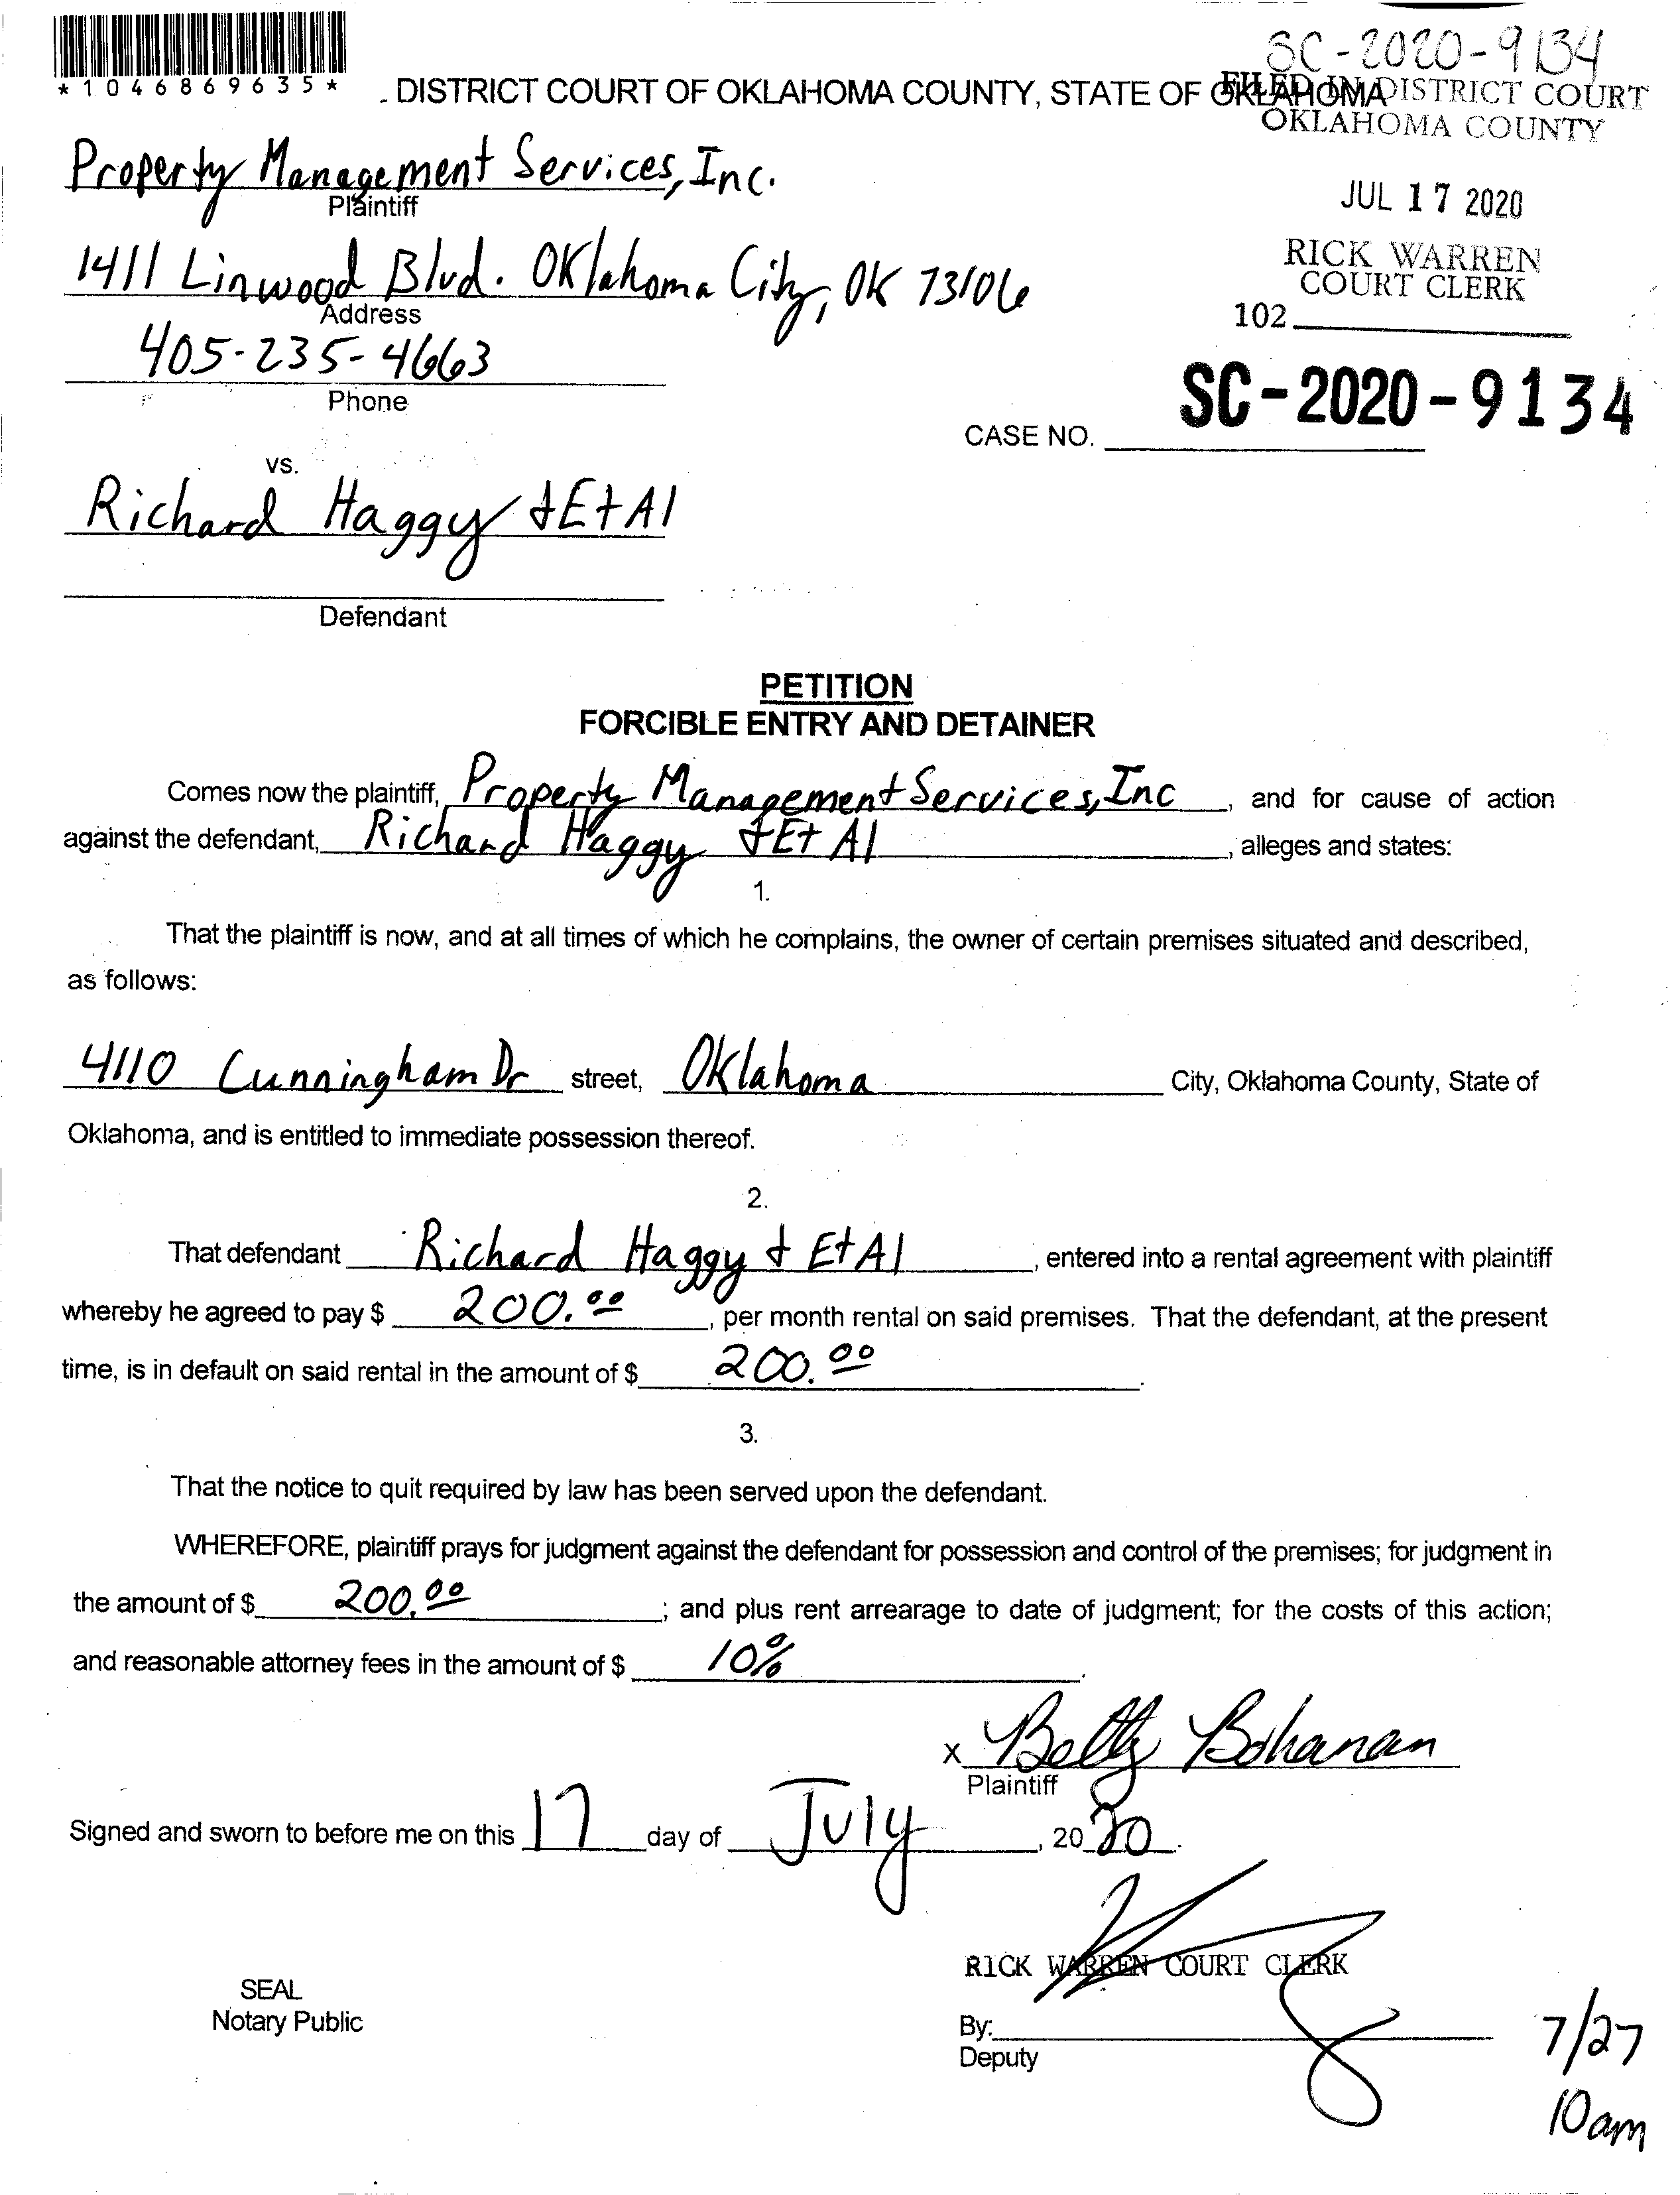 SC-2020-9134
*1046869635*
DISTRICT COURT OF OKLAHOMA COUNTY, STATE OF OKLAHOMA
FILED IN DISTRICT COURT
OKLAHOMA COUNTY
Property Management Services, Inc.
Plaintiff
JUL 17 2020
RICK WARREN
COURT CLERK
102
1411 Linwood Blvd. Oklahoma City, OK 73106
Address
405-235-4663
Phone
CASE NO. SC-2020-9134
vs.
Richard Haggy & Et Al
Defendant
PETITION
FORCIBLE ENTRY AND DETAINER
Comes now the plaintiff, Property Management Services, Inc, and for cause of action
against the defendant, Richard Haggy & Et Al, alleges and states:
1.
That the plaintiff is now, and at all times of which he complains, the owner of certain premises situated and described,
as follows:
4110 Cunningham Dr street, Oklahoma City, Oklahoma County, State of
Oklahoma, and is entitled to immediate possession thereof.
2.
That defendant Richard Haggy & Et Al, entered into a rental agreement with plaintiff
whereby he agreed to pay $ 200.00, per month rental on said premises. That the defendant, at the present
time, is in default on said rental in the amount of $ 200.00.
3.
That the notice to quit required by law has been served upon the defendant.
WHEREFORE, plaintiff prays for judgment against the defendant for possession and control of the premises; for judgment in
the amount of $ 200.00; and plus rent arrearage to date of judgment; for the costs of this action;
and reasonable attorney fees in the amount of $ 10%.
x Betty Bohanan
Plaintiff
Signed and sworn to before me on this 17 day of July, 2020.
RICK WARREN COURT CLERK
SEAL
Notary Public
By:
Deputy
7/27
10am